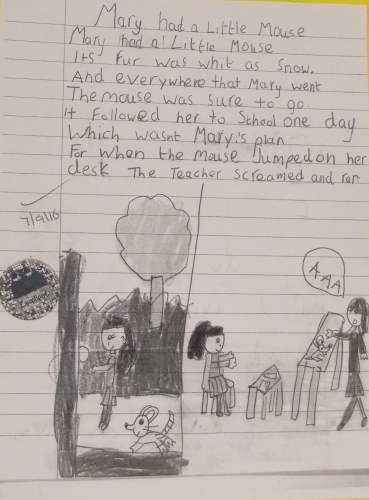 Mary had a Little Mouse
Mary had a Little Mouse
Its Fur was whit as Snow.
And everywhere that Mary went
The mouse was sure to go.
It Followed her to School one day
Which wasnt Mary's plan
For when the mouse Jumped on her
desk The Teacher Screamed and ran
7/9/16
AAA